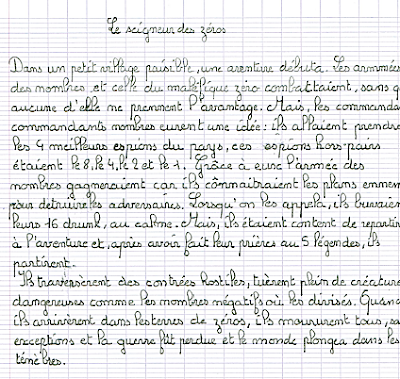 Le seigneur des zéros
Dans un petit village paisible, une aventure débuta. Les armmées
des nombres et celle du maléfique zéro combattaient, sans q
aucune d'elle ne prennent l'avantage. Mais, les commanda
commandants nombres eurent une idée : ils allaient prendre
les 4 meilleurs espions du pays, ces espions hors-pairs
étaient le 8, le 4, le 2 et le 1. Grâce à eux l'armée des
nombres gagneraient car ils connaitraient les plans ennem
pour détruire les adversaires. Lorsqu'on les appela, ils buvaien
leurs 16 drunk, au calme. Mais, ils étaient content de repartir
à l'aventure et, après avoir fait leur prières au 5 légendes, ils
partirent.
Ils traversèrent des contrées hostiles, tuèrent plein de créature
dangereuses comme les nombres négatifs où les divisés. Quand
ils arrivèrent dans les terres de zéros, ils moururent tous, sa
exceptions et la guerre fût perdue et le monde plongea dans les
ténèbres.